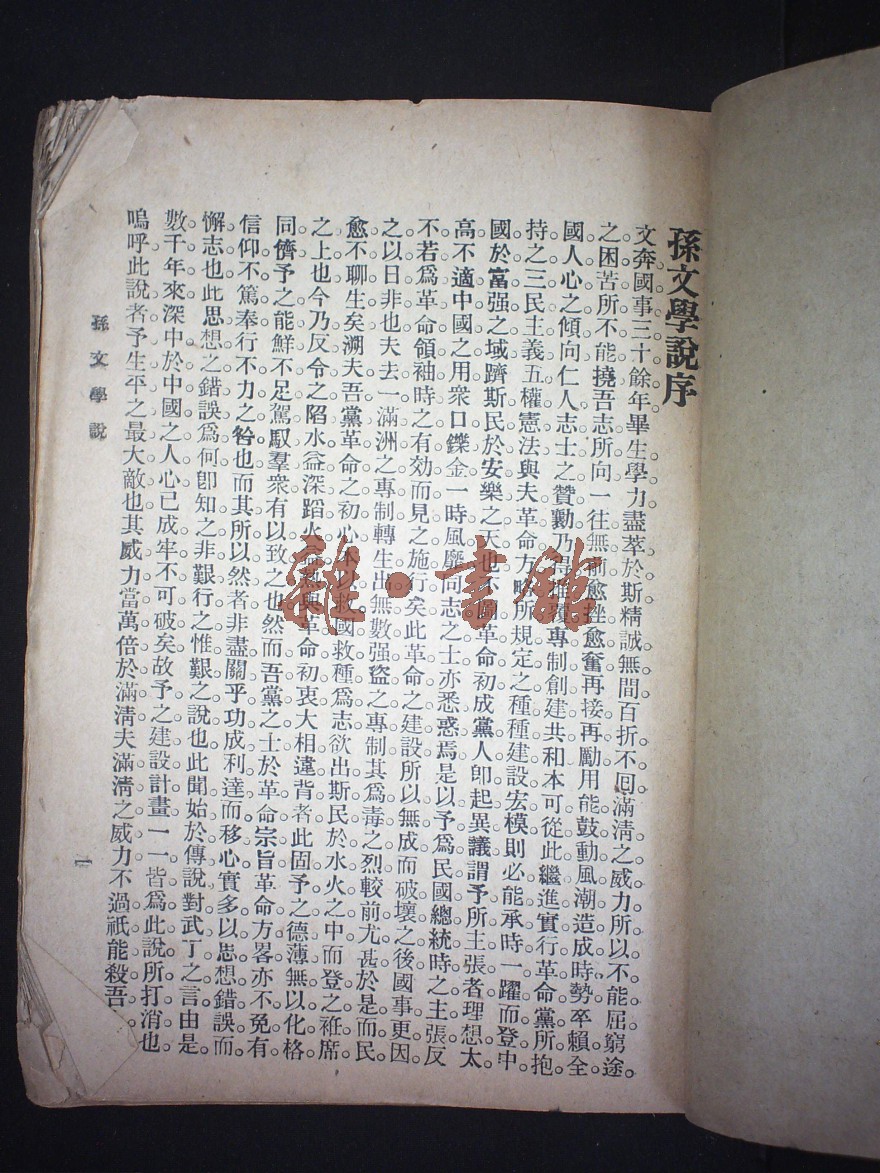 孫文學說序
文奔國事三十餘年。畢生學力。盡萃於斯。精誠無間。百折不回。滿淸之威力所以不能屈。窮途
之困苦。所不能撓。吾志所向。一往無前。愈挫愈奮。再接再勵。用能鼓動風潮。造成時勢。卒賴全
國人心之傾向。仁人志士之贊勷。乃得推覆專制。創建共和。本可從此繼進。實行革命黨所抱
持之三民主義五權憲法。與夫革命方略所規定之種種建設宏模。則必能承時一躍而登中
國於富强之域。躋斯民於安樂之天也。不圖革命初成。黨人卽起異議。謂予所主張者理想太
高。不適中國之用。衆口鑠金。一時風靡。同志之士。亦悉惑焉。是以予爲民國總統時之主張。反
不若爲革命領袖時之有効而見之施行矣。此革命之建設所以無成。而破壞之後。國事更因
之以日非也。夫去一滿洲之專制。轉生出無數强盜之專制。其爲毒之烈。較前尤甚。於是而民
愈不聊生矣。溯夫吾黨革命之初心。本以救國救種爲志。欲出斯民於水火之中。而登之袵席
之上也。今乃反令之陷水益深。蹈火益熱。與革命初衷大相違背者。此固予之德薄無以化格
同儕。予之能鮮不足駕馭羣衆。有以致之也。然而吾黨之士。於革命宗旨。革命方畧。亦不免有
信仰不篤。奉行不力之咎也。而其所以然者。非盡關乎功成利達而移心。實多以思想錯誤而
懈志也。此思想之錯誤爲何。卽知之非艱。行之惟艱之說也。此聞始於傳說對武丁之言。由是
數千年來。深中於中國之人心。已成牢不可破矣。故予之建設計畫。一一皆爲此說所打消也。
嗚呼。此說者。予生平之最大敵也。其威力當萬倍於滿淸。夫滿淸之威力。不過祇能殺吾
孫文學說
一
雜·書館